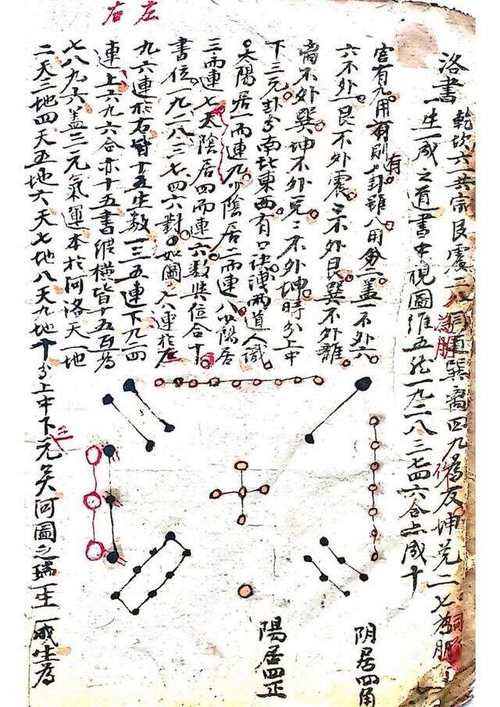 左右
洛書
乾坎六一共宗艮震三八為朋同道巽离四九為友坤兌二七為朋
一生一成之道書中視圖
一九二八三七四六合亦成十
宮有九用有則卦雖八用
六不外一艮不外震三不外艮巽不外離
离不外巽坤不外兌二不外坤時分上中
下三元卦分南北東西有口訣
太陽居一而連九少陰居二而連八少陽居
三而連七太陰居四而連六數與位合十
書位一九二八三七四六對如圖之八連於左
九六連於右皆十五生數一三五連下九二四
連上六九六合亦十五書縱橫皆十五
七八九六蓋三元氣運本於河洛天一地
二天三地四天五地六天七地八天九地十分上中下三元矣河圖之瑞一生一成
陰居四角
陽居四正